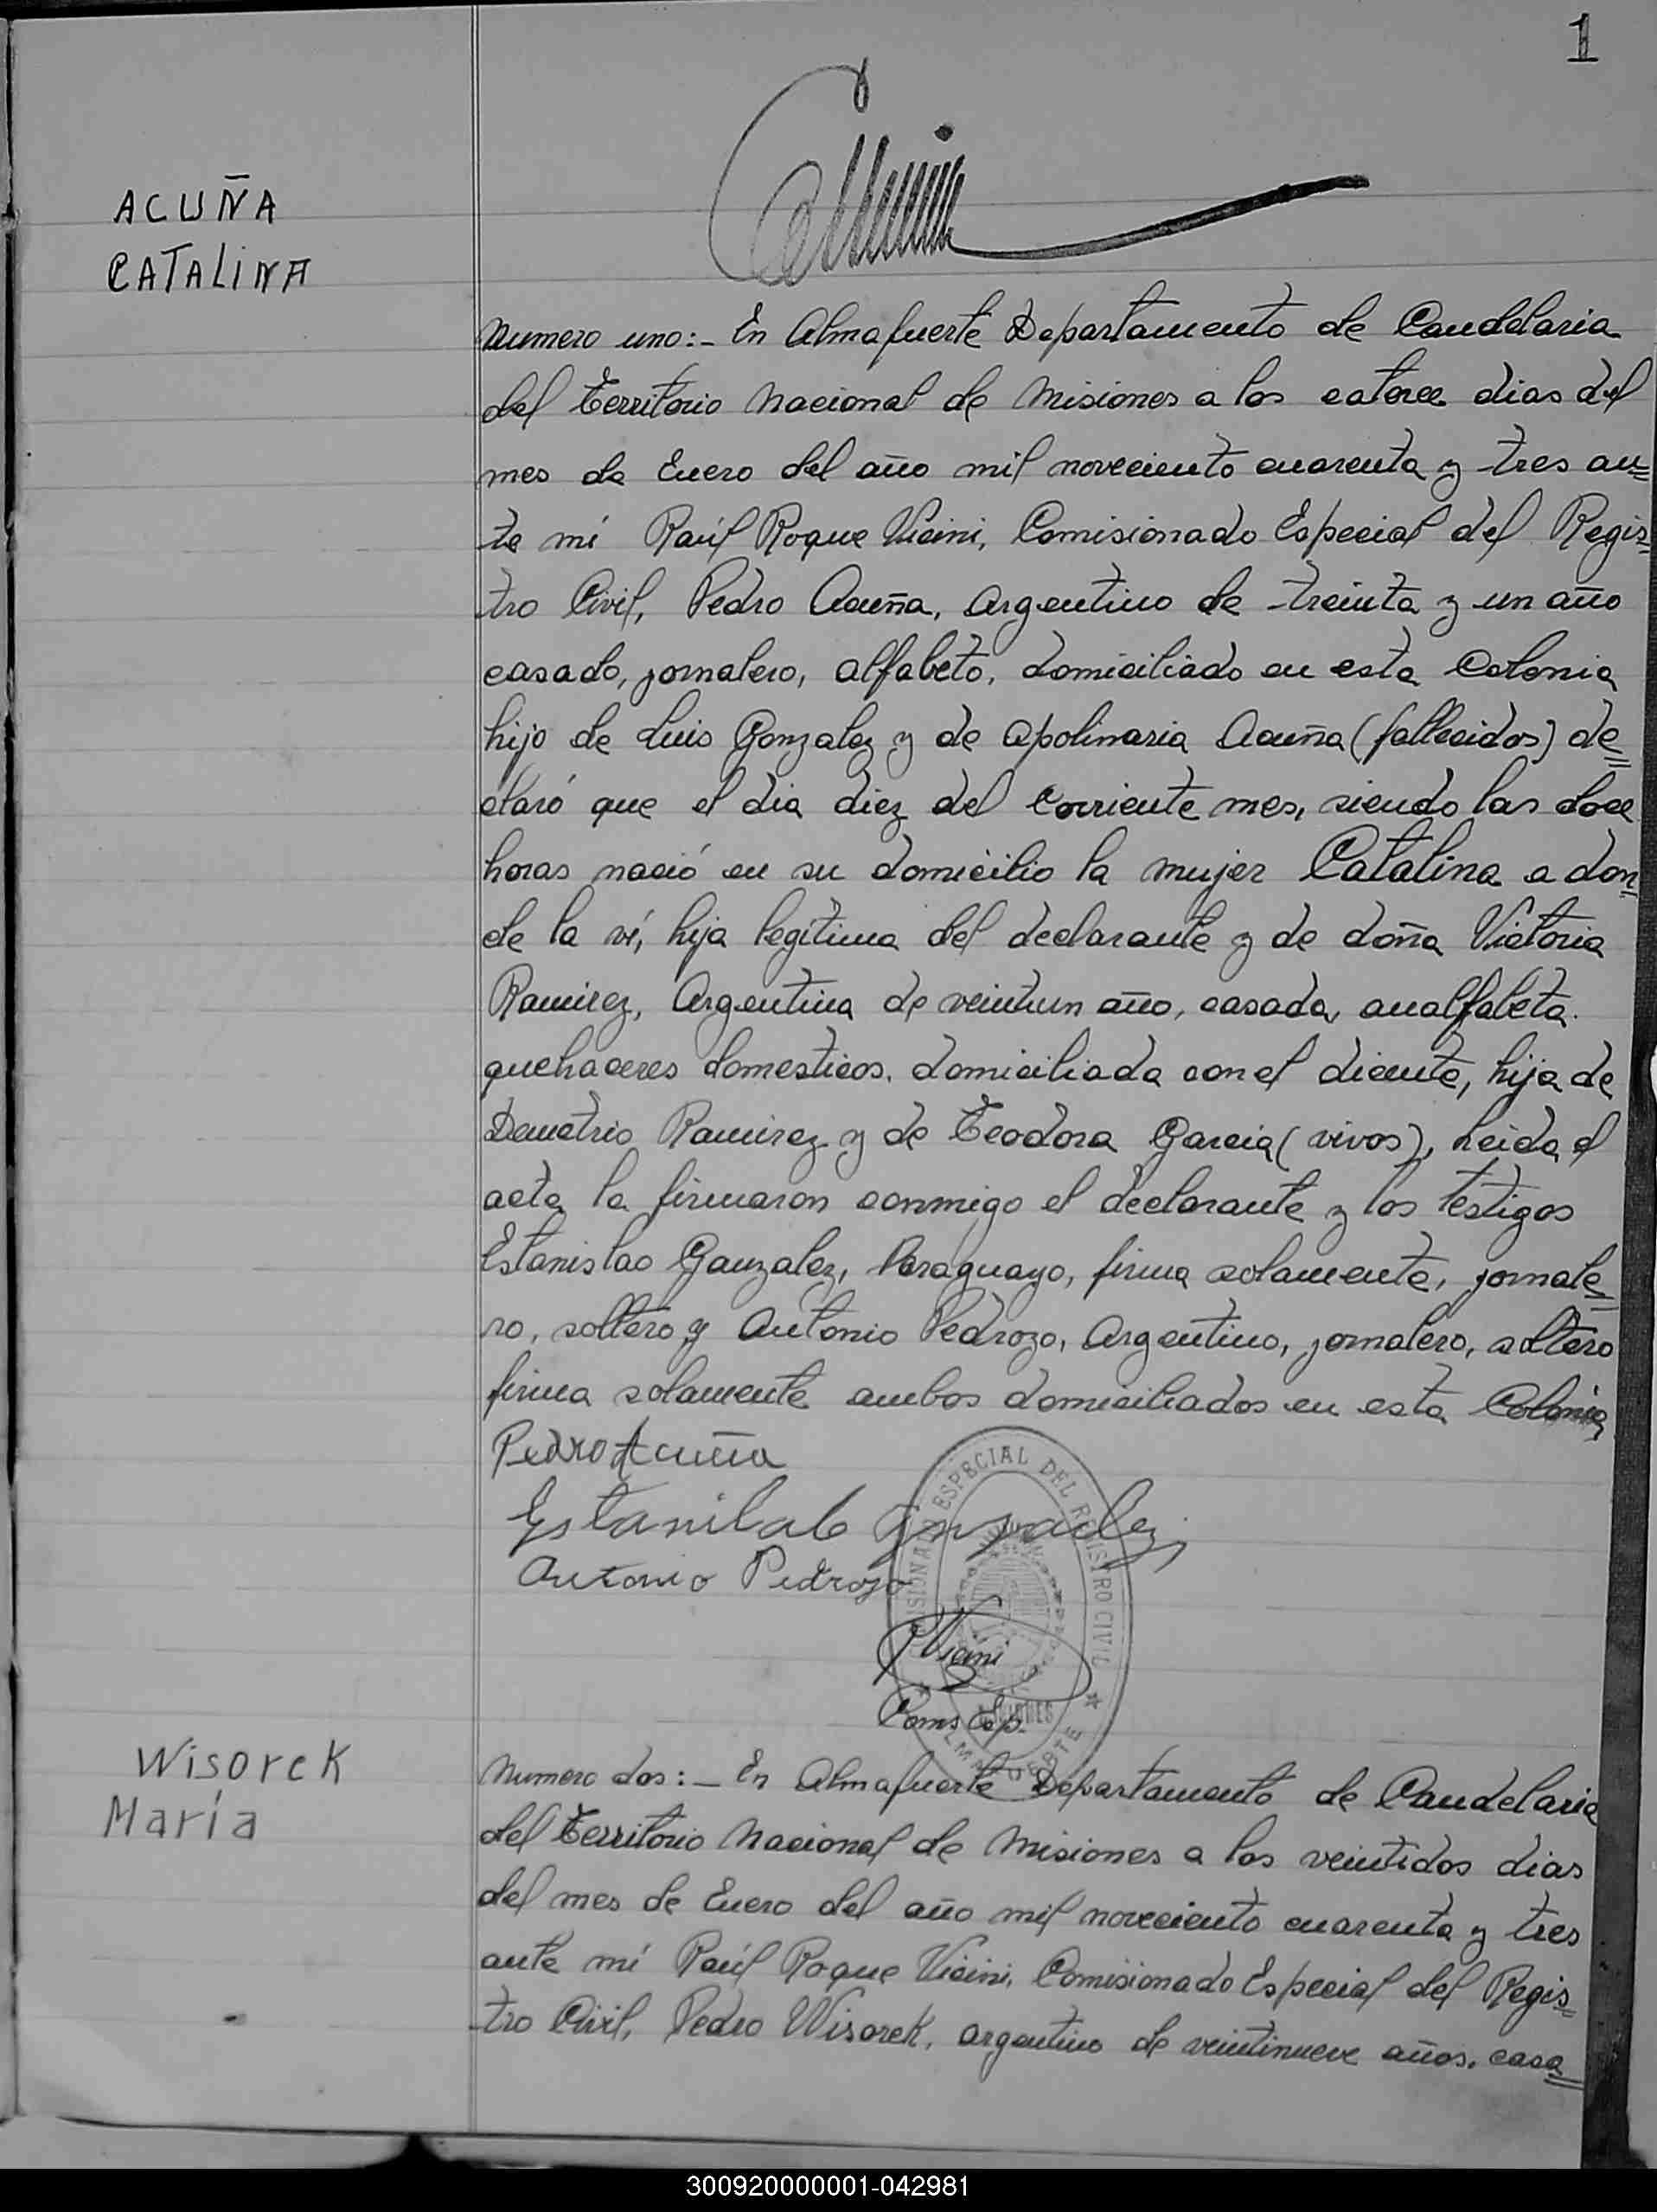 1
ACUÑA
CATALINA
Numero uno:- En Almafuerte Departamento de Candelaria
del Territorio Nacional de Misiones a los catorce dias del
mes de Enero del año mil noveciento cuarenta y tres an=
te mí Raúl Roque Vicini, Comisionado Especial del Regis=
tro Civil, Pedro Acuña, Argentino de treinta y un año
casado, jornalero, alfabeto, domiciliado en esta Colonia
hijo de Luis Gonzalez y de Apolinaria Acuña (fallecidos) de=
claró que el dia diez del corriente mes, siendo las doce
horas nació en su domicilio la mujer Catalina a don=
de la ví, hija legítima del declarante y de doña Victoria
Ramirez, Argentina de veintiun año, casada, analfabeta.
quehaceres domesticos. domiciliada con el dicente, hija de
Demetrio Ramirez y de Teodora Garcia (vivos), Leida el
acta la firmaron conmigo el declarante y los testigos
Estanislao Ganzalez, Paraguayo, firma solamente, jornale=
ro, soltero y Antonio Pedrozo, Argentino, jornalero, soltero
firma solamente ambos domiciliados en esta Colonia
Pedro Acuña
Estanilab Gonzalez
Antonio Pedrozo
ESPECIAL DEL REGISTRO CIVIL
RVicini
Coms Esp.
MISIONES
ALMAFUERTE
Wisorek
María
Numero dos:- En Almafuerte Departamento de Candelaria
del Territorio Nacional de Misiones a los veintidos dias
del mes de Enero del año mil noveciento cuarenta y tres
ante mí Raúl Roque Vicini, Comisionado Especial del Regis=
tro Civil, Pedro Wisorek, argentino de veintinueve años, casa=
300920000001-042981